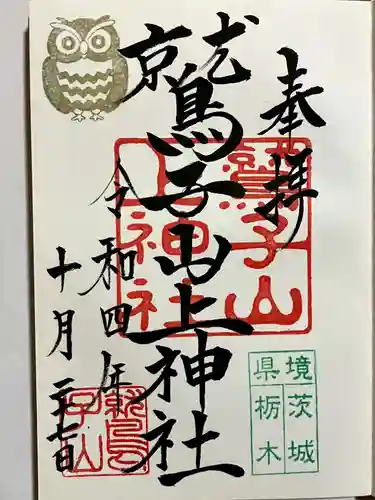 奉拝
鷲子山上神社
令和四年
十月二十七日
鷲子山
上神社
県境
茨城
栃木